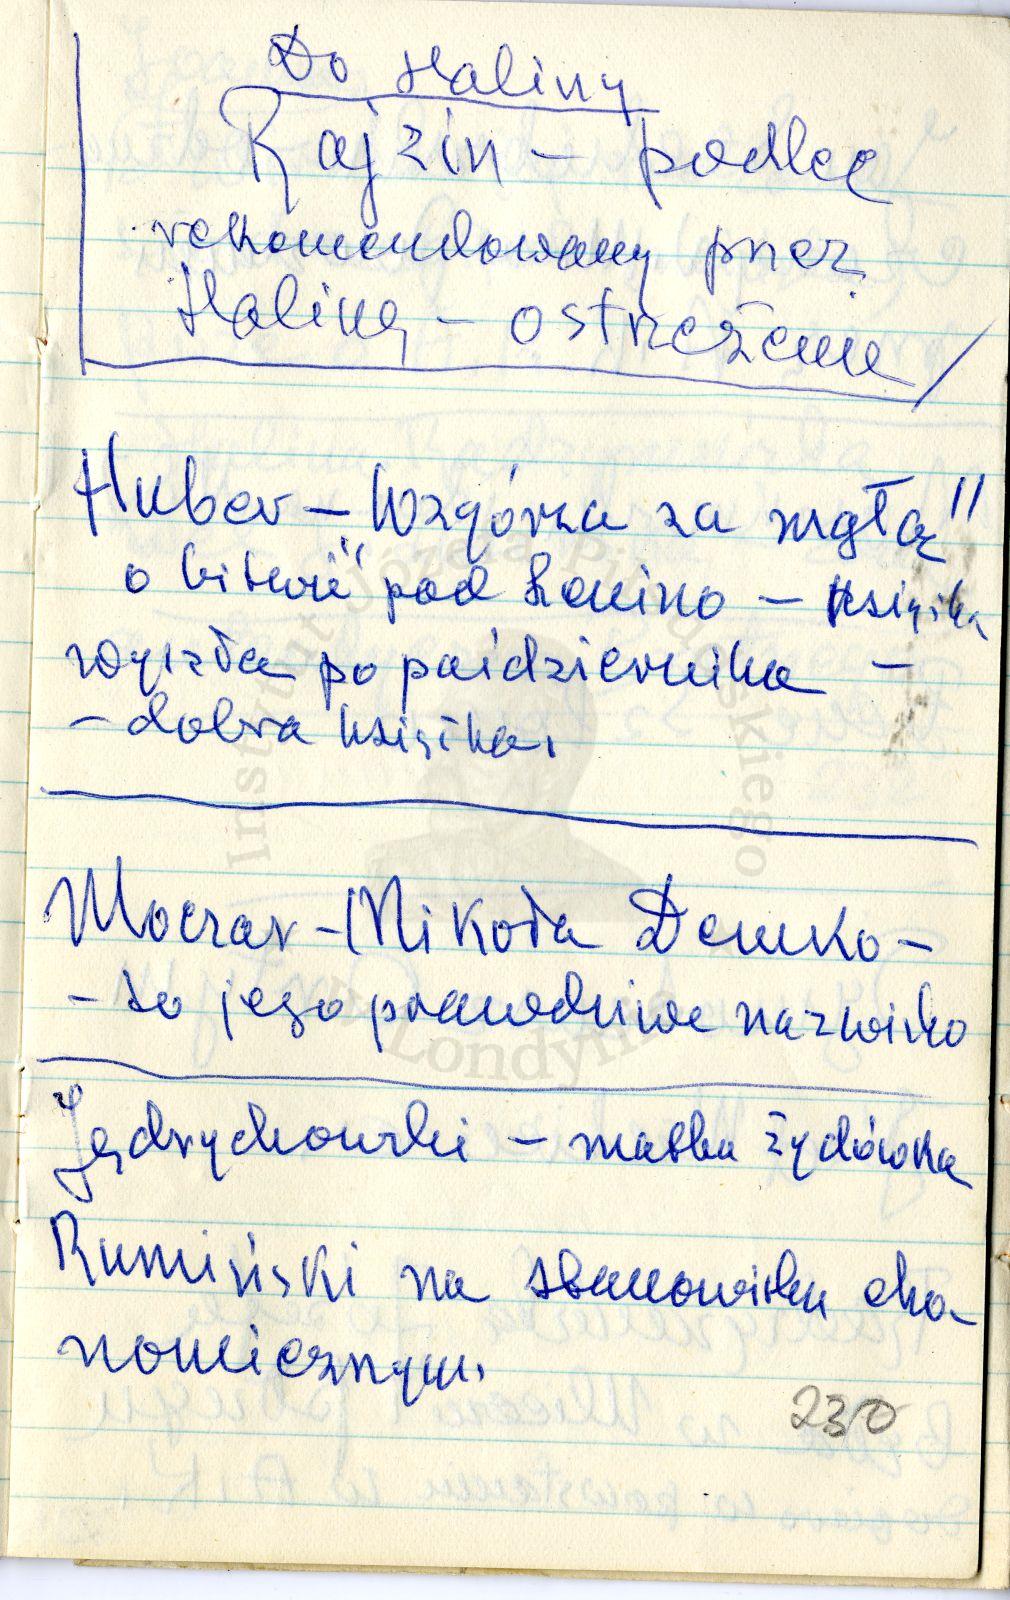 Do Haliny
Rajzin – podlec
rekomendowany przez
Halinę – ostrzeżenie
Huber – "Wzgórza za mgłą"
o bitwie pod Lenino – książka
wyszła po październiku –
– dobra książka.
Moczar – Mikoła Demko –
– to jego prawdziwe nazwisko
Jędrychowski – matka żydówka
Rumiński na stanowisku eko
nomicznym.
230
Instytut Józefa Piłsudskiego
w Londynie